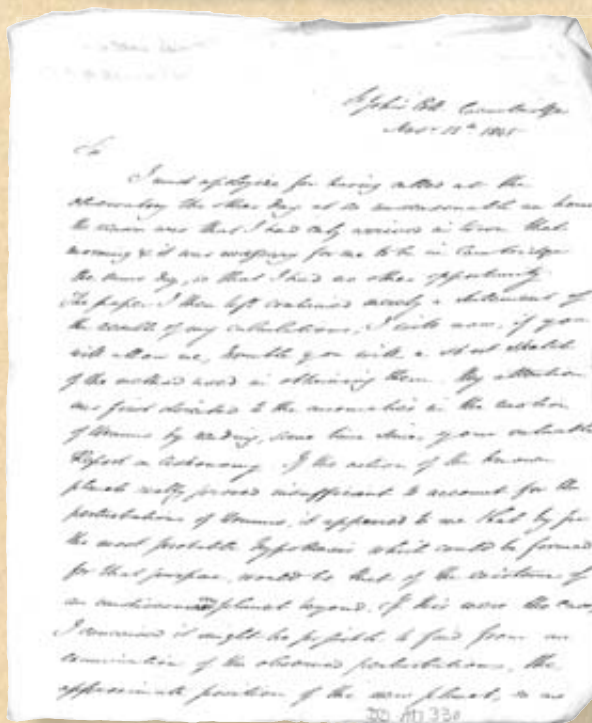 St John's Coll. Cambridge
Novr 1845
Sir
I must apologise for having called at the
observatory the other day at so unseasonable an hour
the reason was that I had only arrived in town that
morning & it was necessary for me to be in Cambridge
the same day, so that I had no other opportunity
The paper I then left contained merely a statement of
the results of my calculations, I will now, if you
will allow me, trouble you with a short sketch
of the method used in obtaining them. My attention
was first directed to the anomalies in the motion
of Uranus by reading, some time since, your valuable
Report on Astronomy. If the action of the known
planets really proved insufficient to account for the
perturbations of Uranus, it appeared to me that by far
the most probable hypothesis which could be formed
for that purpose, would be that of the existence of
an undiscovered planet beyond. If this were the case,
I conceived it might be possible to find from an
examination of the observed perturbations, the
approximate position of the new planet, in
330